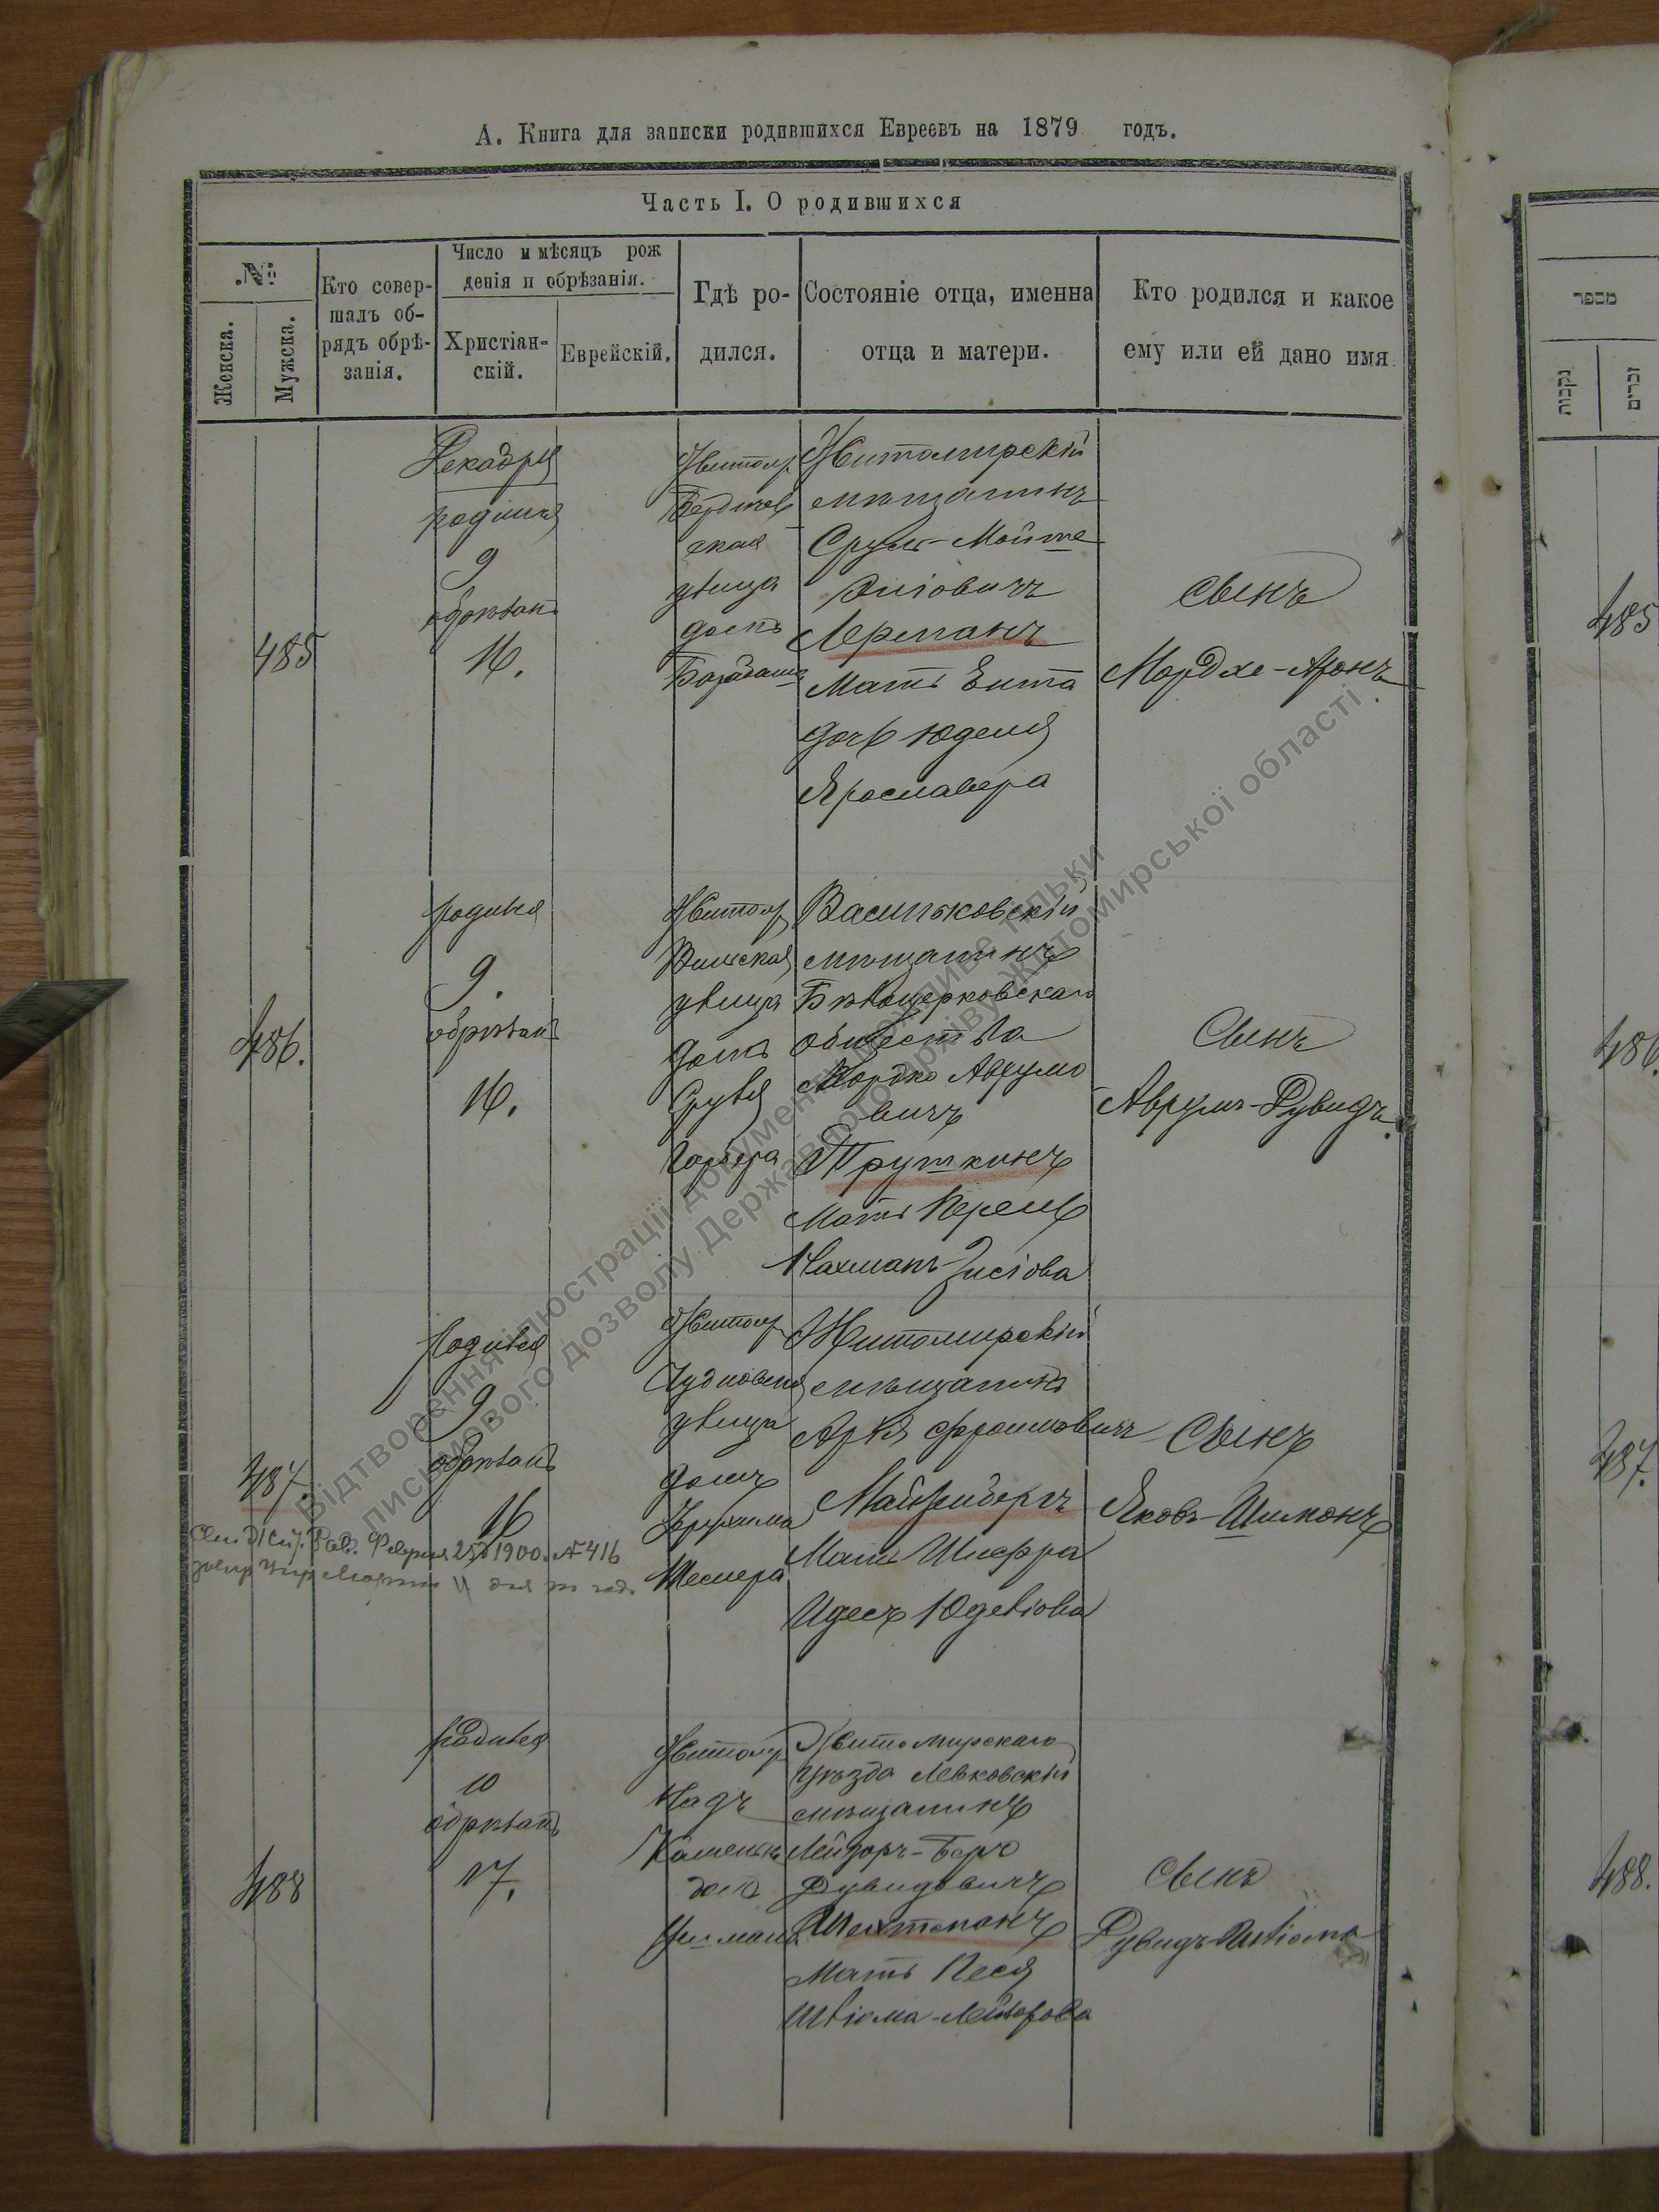 А. Книга для записки родившихся Евреевъ на 1879 годъ.
Часть I. О родившихся
№
Женска.
Мужска.
Кто совер-
шалъ об-
рядъ обрѣ-
занія.
Число и мѣсяцъ рож
денія и обрѣзанія.
Христіан-
скій.
Еврейскій.
Гдѣ ро-
дился.
Состояніе отца, именна
отца и матери.
Кто родился и какое
ему или ей дано имя
485
Декабря
родился
9
обрѣзанъ
16.
Житомр
Бердичев
ская
улица
домъ
Житомирскій
мѣщанинъ
Сруль-Мойше
Лерманъ
Мать Ента
дочь Юделя
Ярославера
Сынъ
Мордхе-Аронъ
486.
родился
9.
обрѣзанъ
16.
Житомр
Вильская
улица
домъ
Сруля
Гарбера
Васильковскій
мѣщанинъ
Бѣлоцерковскаго
общества
Мордко Аврумо
вичъ
Трушкинъ
Мать Перель
Нахманъ-Зисіова
Сынъ
Аврумъ-Дувидъ.
487.
Родился
9.
обрѣзанъ
16
Февраля 25 1900. №416
Житомр
Чудновская
улица
домъ
Житомирскій
мѣщанинъ
Арія Фроимовичъ
Майзибергъ
Мать Шифра
Идесъ Юделіова
Сынъ
Яковъ-Шимонъ
488
родился
10
обрѣзанъ
17.
Житомр
Надъ
Каменкъ
домъ
Житомирскаго
уѣзда Левковскій
мѣщанинъ
Лейзоръ-Берко
Дувидовичъ
Шехтманъ
Мать Песя
Шліома-Лейзорова
Сынъ
Дувидъ-Шліома
מספר
נקבות
זכרים
485
486.
487.
488.
Відтворення ілюстрації документів можливе тільки
письмового дозволу Державного архіву Житомирської області